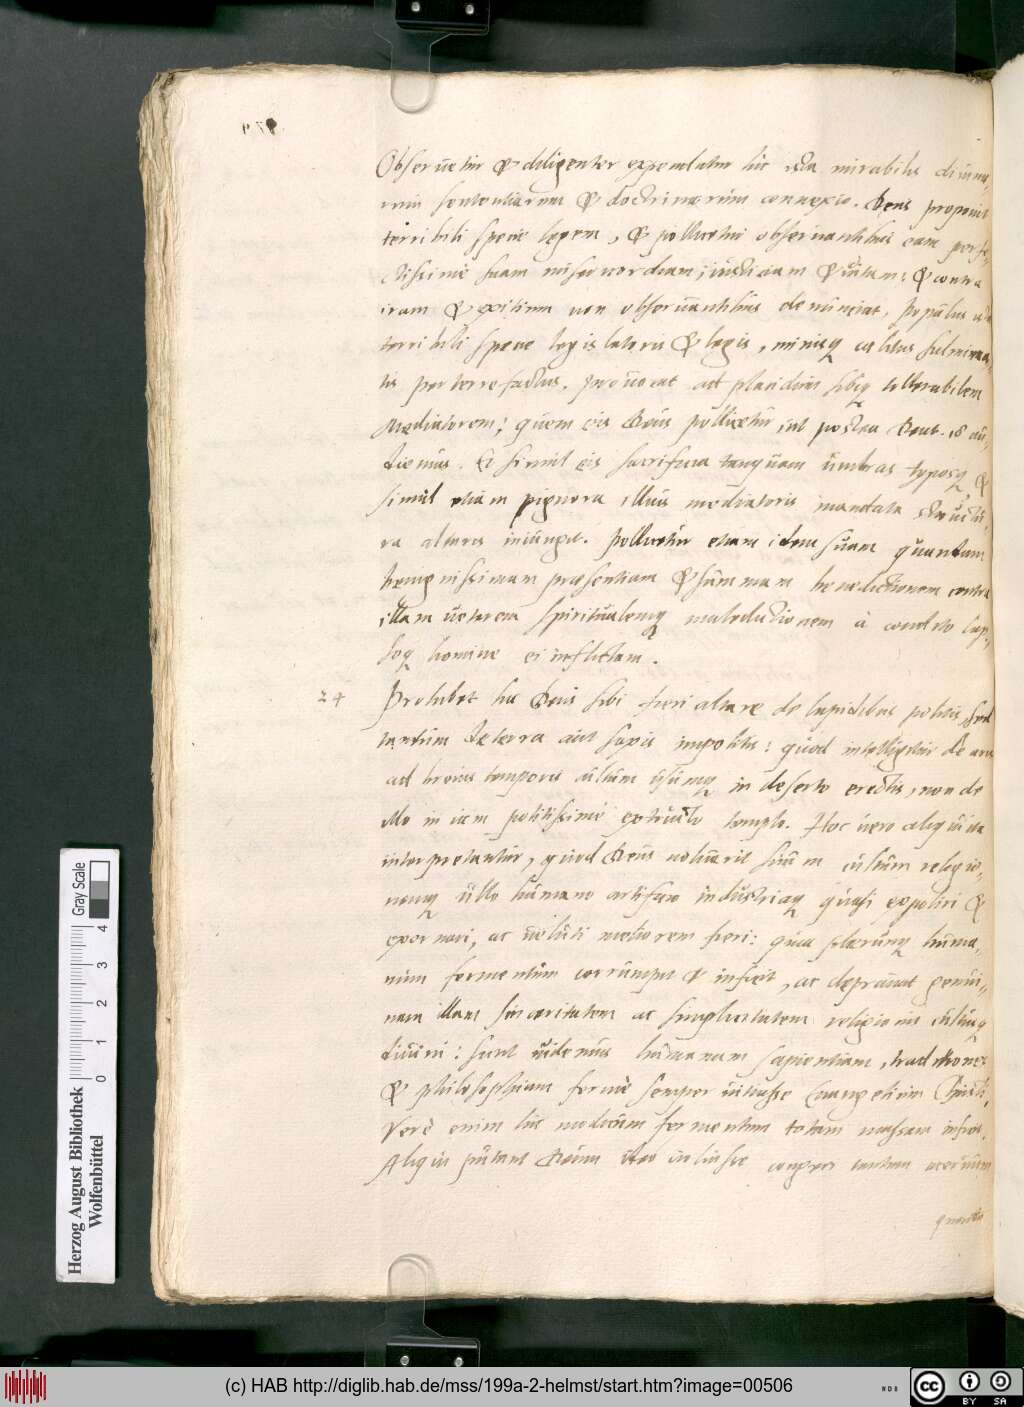 Observetur & diligenter expendatur hic ista mirabilis divina-
rum sententiarum & doctrinarum connexio. Deus proponit
terribili specie legem, & pollicetur observantibus eam perfe-
ctissime suam misericordiam, iusticiam & vitam: & contra
iram & exitium non observantibus denunciat. Populus ista
terribili specie legislatoris & legis, minisq
tis perterrefactus, provocat ad placidum sibiq tollerabilem
Mediatorem: quem eis Deus pollicetur, ut postea Deut. 18 au-
diemus. Et simul eis sacrificia tanquam umbras typosq &
simul etiam pignora illius mediatoris mandata structu-
ra altaris iniungit. Pollicetur etiam idem suam quandam
benignissimam præsentiam & summam benedictionem contra
illam veterem spiritualemq maledictionem à condito lap-
soq homine ei inflictam.
24 Prohibet hic Deus sibi fieri altare de lapidibus politis sed
tantum de terra aut saxis impolitis: quod intelligitur de aris
ad brevis temporis cultum usumq in deserto erectis, non de
illo in eum politissime extructo templo. Hoc vero aliqui ita
interpretantur, quod Deus noluerit suum cultum religio-
nemq ullo humano artificio industriaq quasi expoliri &
exornari, ac veluti meliorem fieri: quia plerunq huma-
num fermentum corrumpit & inficit, ac depravat genui-
nam illam sinceritatem ac simplicitatem religionis cultusq
divini: sicut videmus humanam sapientiam, traditiones
& philosophiam ferme semper vitiasse Evangelium Christi.
Vere enim hic modicum fermentum totam massam inficit.
Aliqui putant Deum ideo iussisse congeri tantum acervum
quendam
Herzog August Bibliothek
Wolfenbüttel
Gray Scale
0 1 2 3 4
(c) HAB http://diglib.hab.de/mss/199a-2-helmst/start.htm?image=00506
CC BY SA